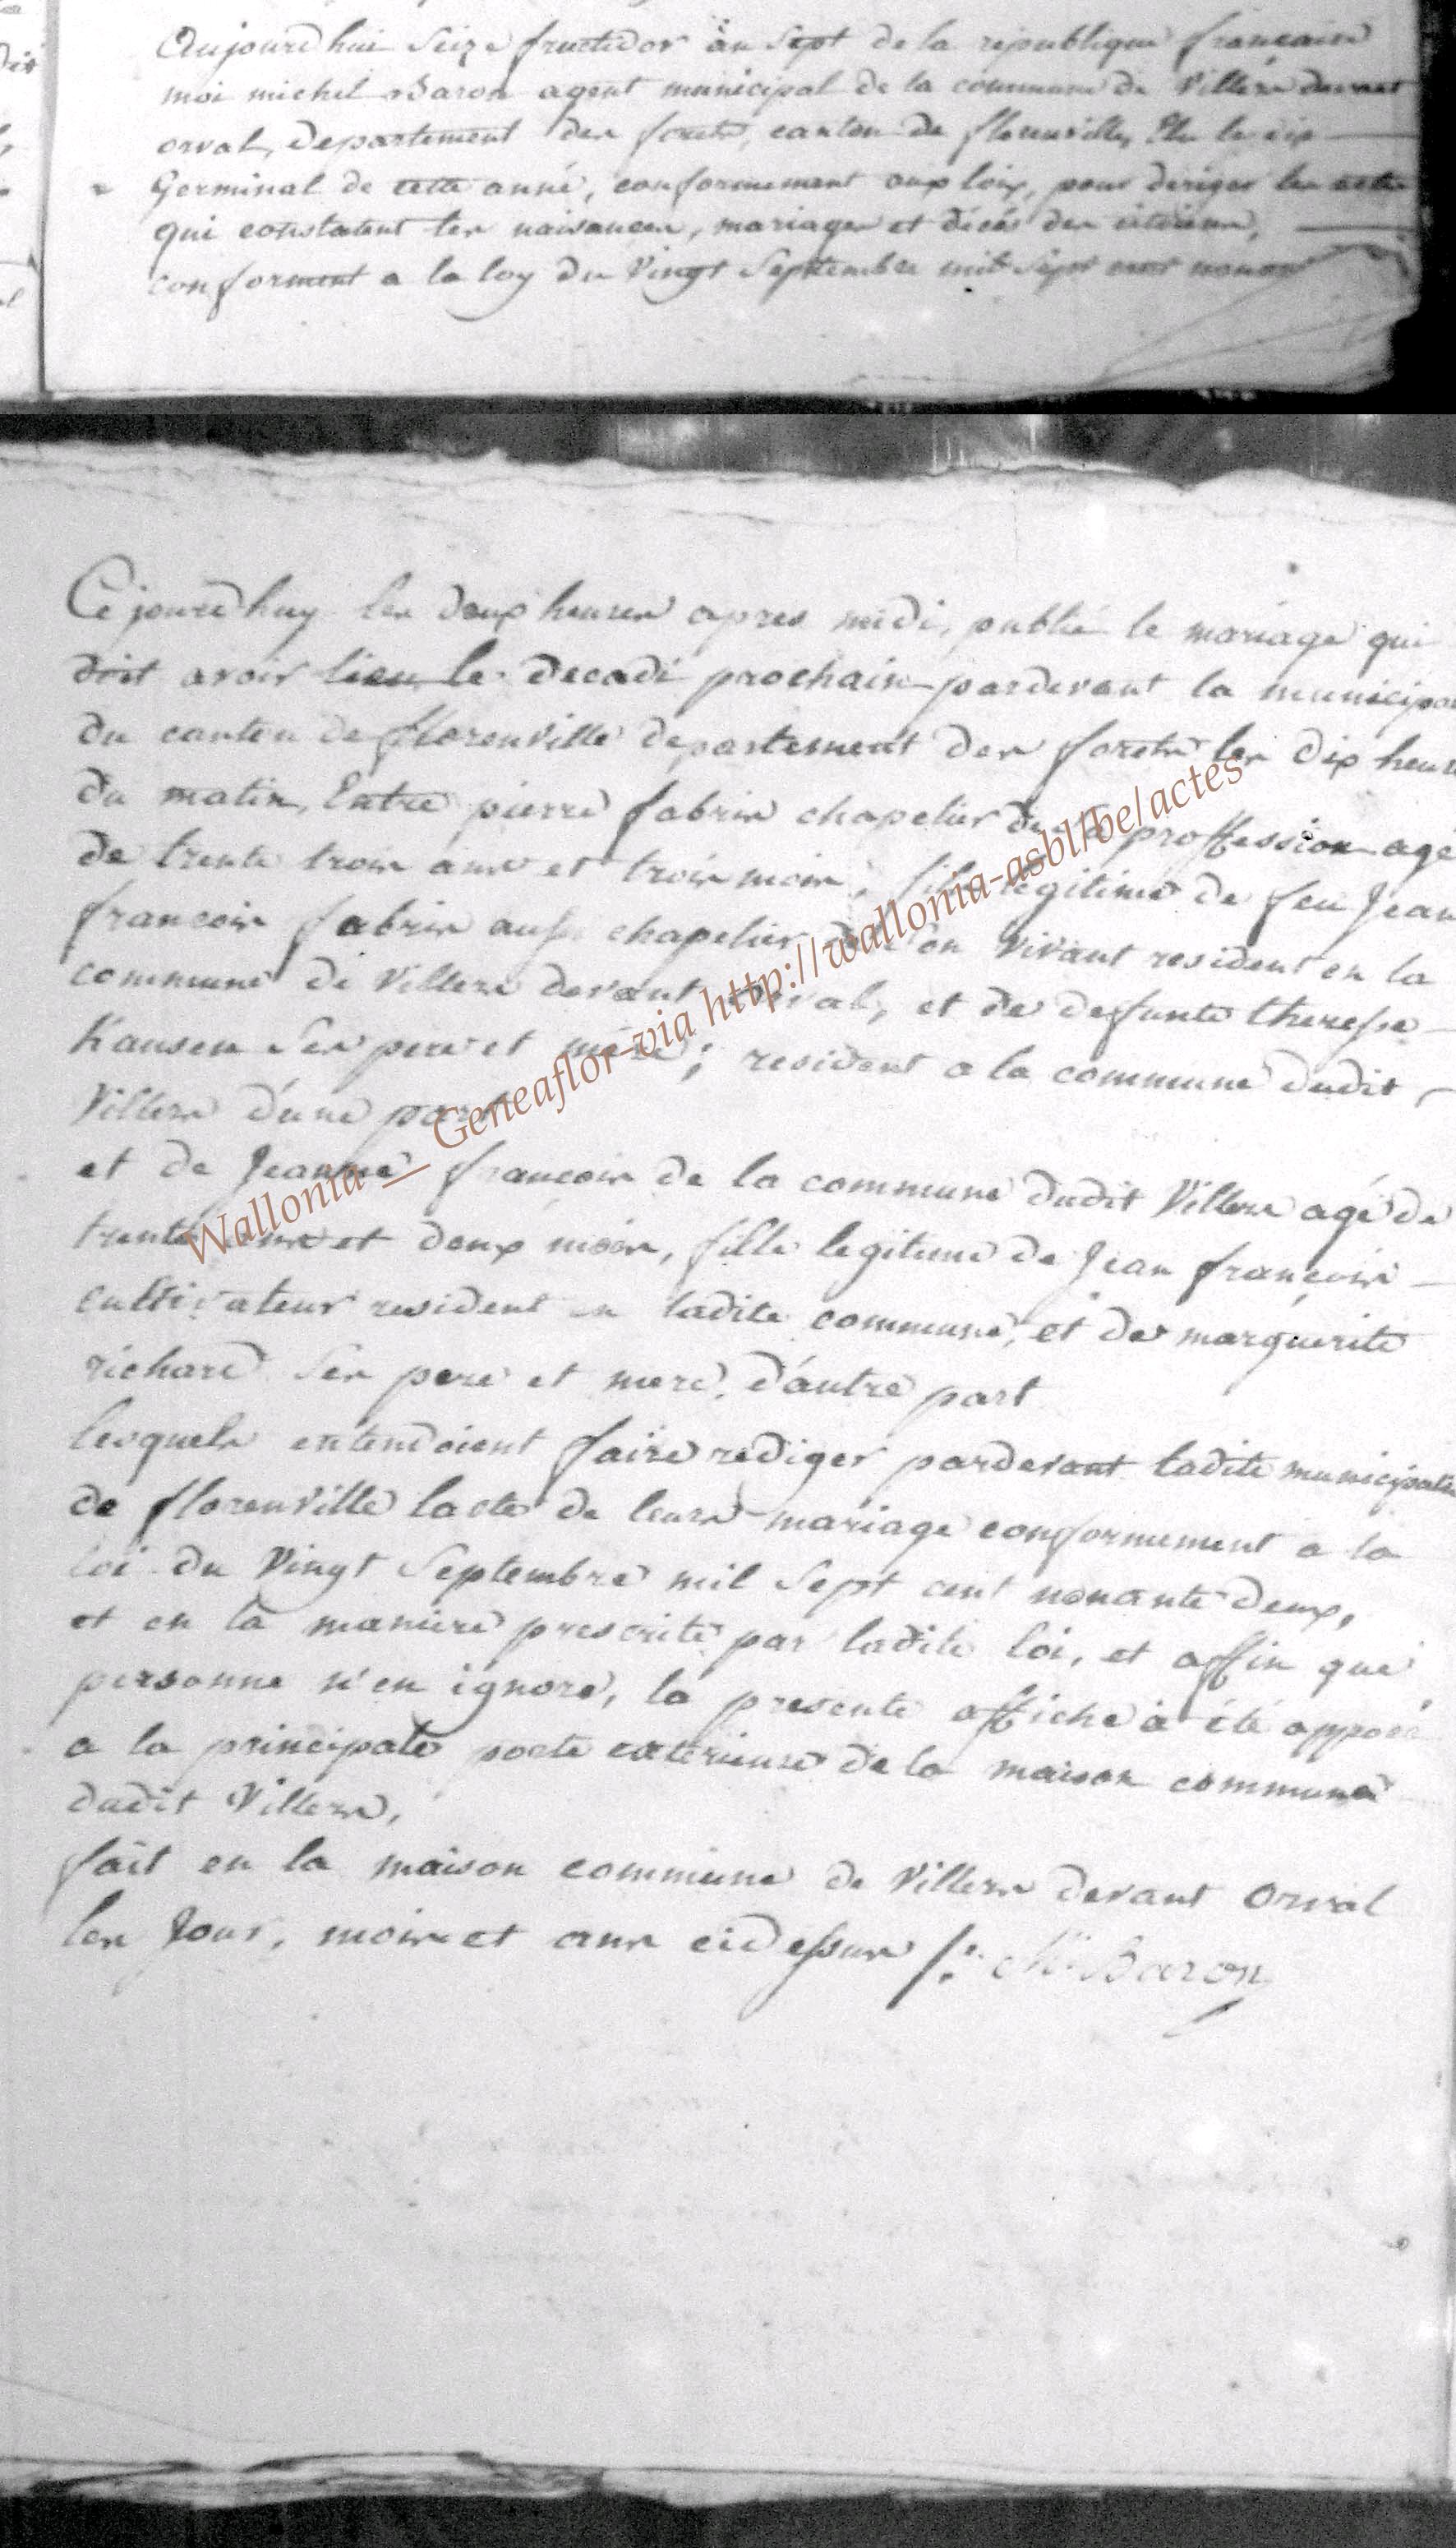 Aujourd hui Seize fructidor an Sept de la republique francaise
moi michel Baron agent municipal de la commune de Villers devant
orval, departement des forets, canton de florenville, Elu le dix
Germinal de cette anné, conformement aux loix, pour deriger les actes
qui constatent les naisances, mariages et décés des citoiens,
conforment a la loy du Vingt Septembre mil Sept cent
Ce jourdhuy les deux heures apres midi, publié le mariage qui
doit avoir lieu le decadi prochain pardevant la municipal
du canton de florenville departement des forets les dix heur
du matin, Entre pierre fabrin chapelier de proffession age
de trente trois ans et trois mois, fils legitime de feu Jean
francois fabrin aussi chapelier en Vivant resident en la
commune de Villers devant orval, et de defunte therese
hansen Ses pere et mere; resident a la commune dudit
Villers d'une part
et de Jeanne francois de la commune dudit Villers agé de
trente ans et deux mois, fille legitime de Jean françois
cultivateur resident en ladite commune, et de marguerite
richard Ses pere et mere, d'autre part
lesquels entendoient faire rediger pardevant ladite municipalite
de florenville lacte de leurs mariage conformement a la
loi du Vingt Septembre mil Sept cent nonante deux,
et en la maniere prescrite par ladite loi, et affin que
personne n'en ignore, la presente affiche à été apposé
a la principale porte exterieure de la maison commune
dudit Villers,
fait en la maison commune de Villers devant Orval
les Jour, mois et ans cidessus M. Baron
Wallonia __ Geneaflor-via http://wallonia-asbl/be/actes